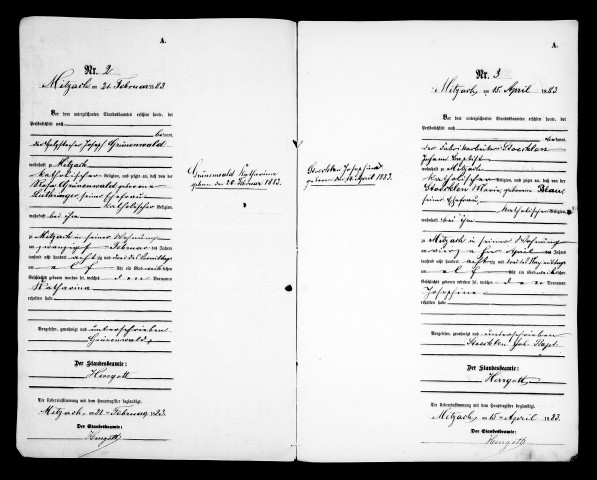 A.
Nr. 2
Mitzach am 21. Februar 1883
Vor dem unterzeichneten Standesbeamten erschien heute, der
Persönlichkeit nach
bekannt,
der Holzstecher Joseph Grünenwald
wohnhaft zu Mitzach
katholischer Religion, und zeigte an, daß von der
Grünenwald geborene
seiner Ehefrau
katholischer Religion,
wohnhaft bei ihm
zu Mitzach in seiner Wohnung
am zwanzigsten Februar des Jahres
tausend acht hundert achtzig und drei des Vormittags
um elf Uhr ein Kind weiblichen
Geschlechts geboren worden sei, welches den Vornamen
Katharina
erhalten habe
Vorgelesen, genehmigt und unterschrieben
Grünenwald
Der Standesbeamte:
Herrgott
Die Uebereinstimmung mit dem Hauptregister beglaubigt.
Mitzach am 21. Februar 1883.
Der Standesbeamte:
Herrgott
Grünenwald Katharina
geboren den 20. Februar 1883.
Stoecklen Josephine
geboren den April 1883.
A.
Nr. 3
Mitzach, am 15. April 1883
Vor dem unterzeichneten Standesbeamten erschien heute, der
Persönlichkeit nach
bekannt,
der Fabrikarbeiter Stoecklen
Johann Baptist
wohnhaft zu Mitzach
katholischer Religion, und zeigte an, daß von der
Stoecklen Maria geborene Blau
seiner Ehefrau,
katholischer Religion,
wohnhaft bei ihm
zu Mitzach in seiner Wohnung
April des Jahres
tausend acht hundert achtzig und drei des Vormittags
um elf Uhr ein Kind weiblichen
Geschlechts geboren worden sei, welches den Vornamen
Josephine
erhalten habe
Vorgelesen, genehmigt und unterschrieben
Stoecklen Joh. Bapt.
Der Standesbeamte:
Herrgott
Die Uebereinstimmung mit dem Hauptregister beglaubigt.
Mitzach am 15. April 1883.
Der Standesbeamte:
Herrgott